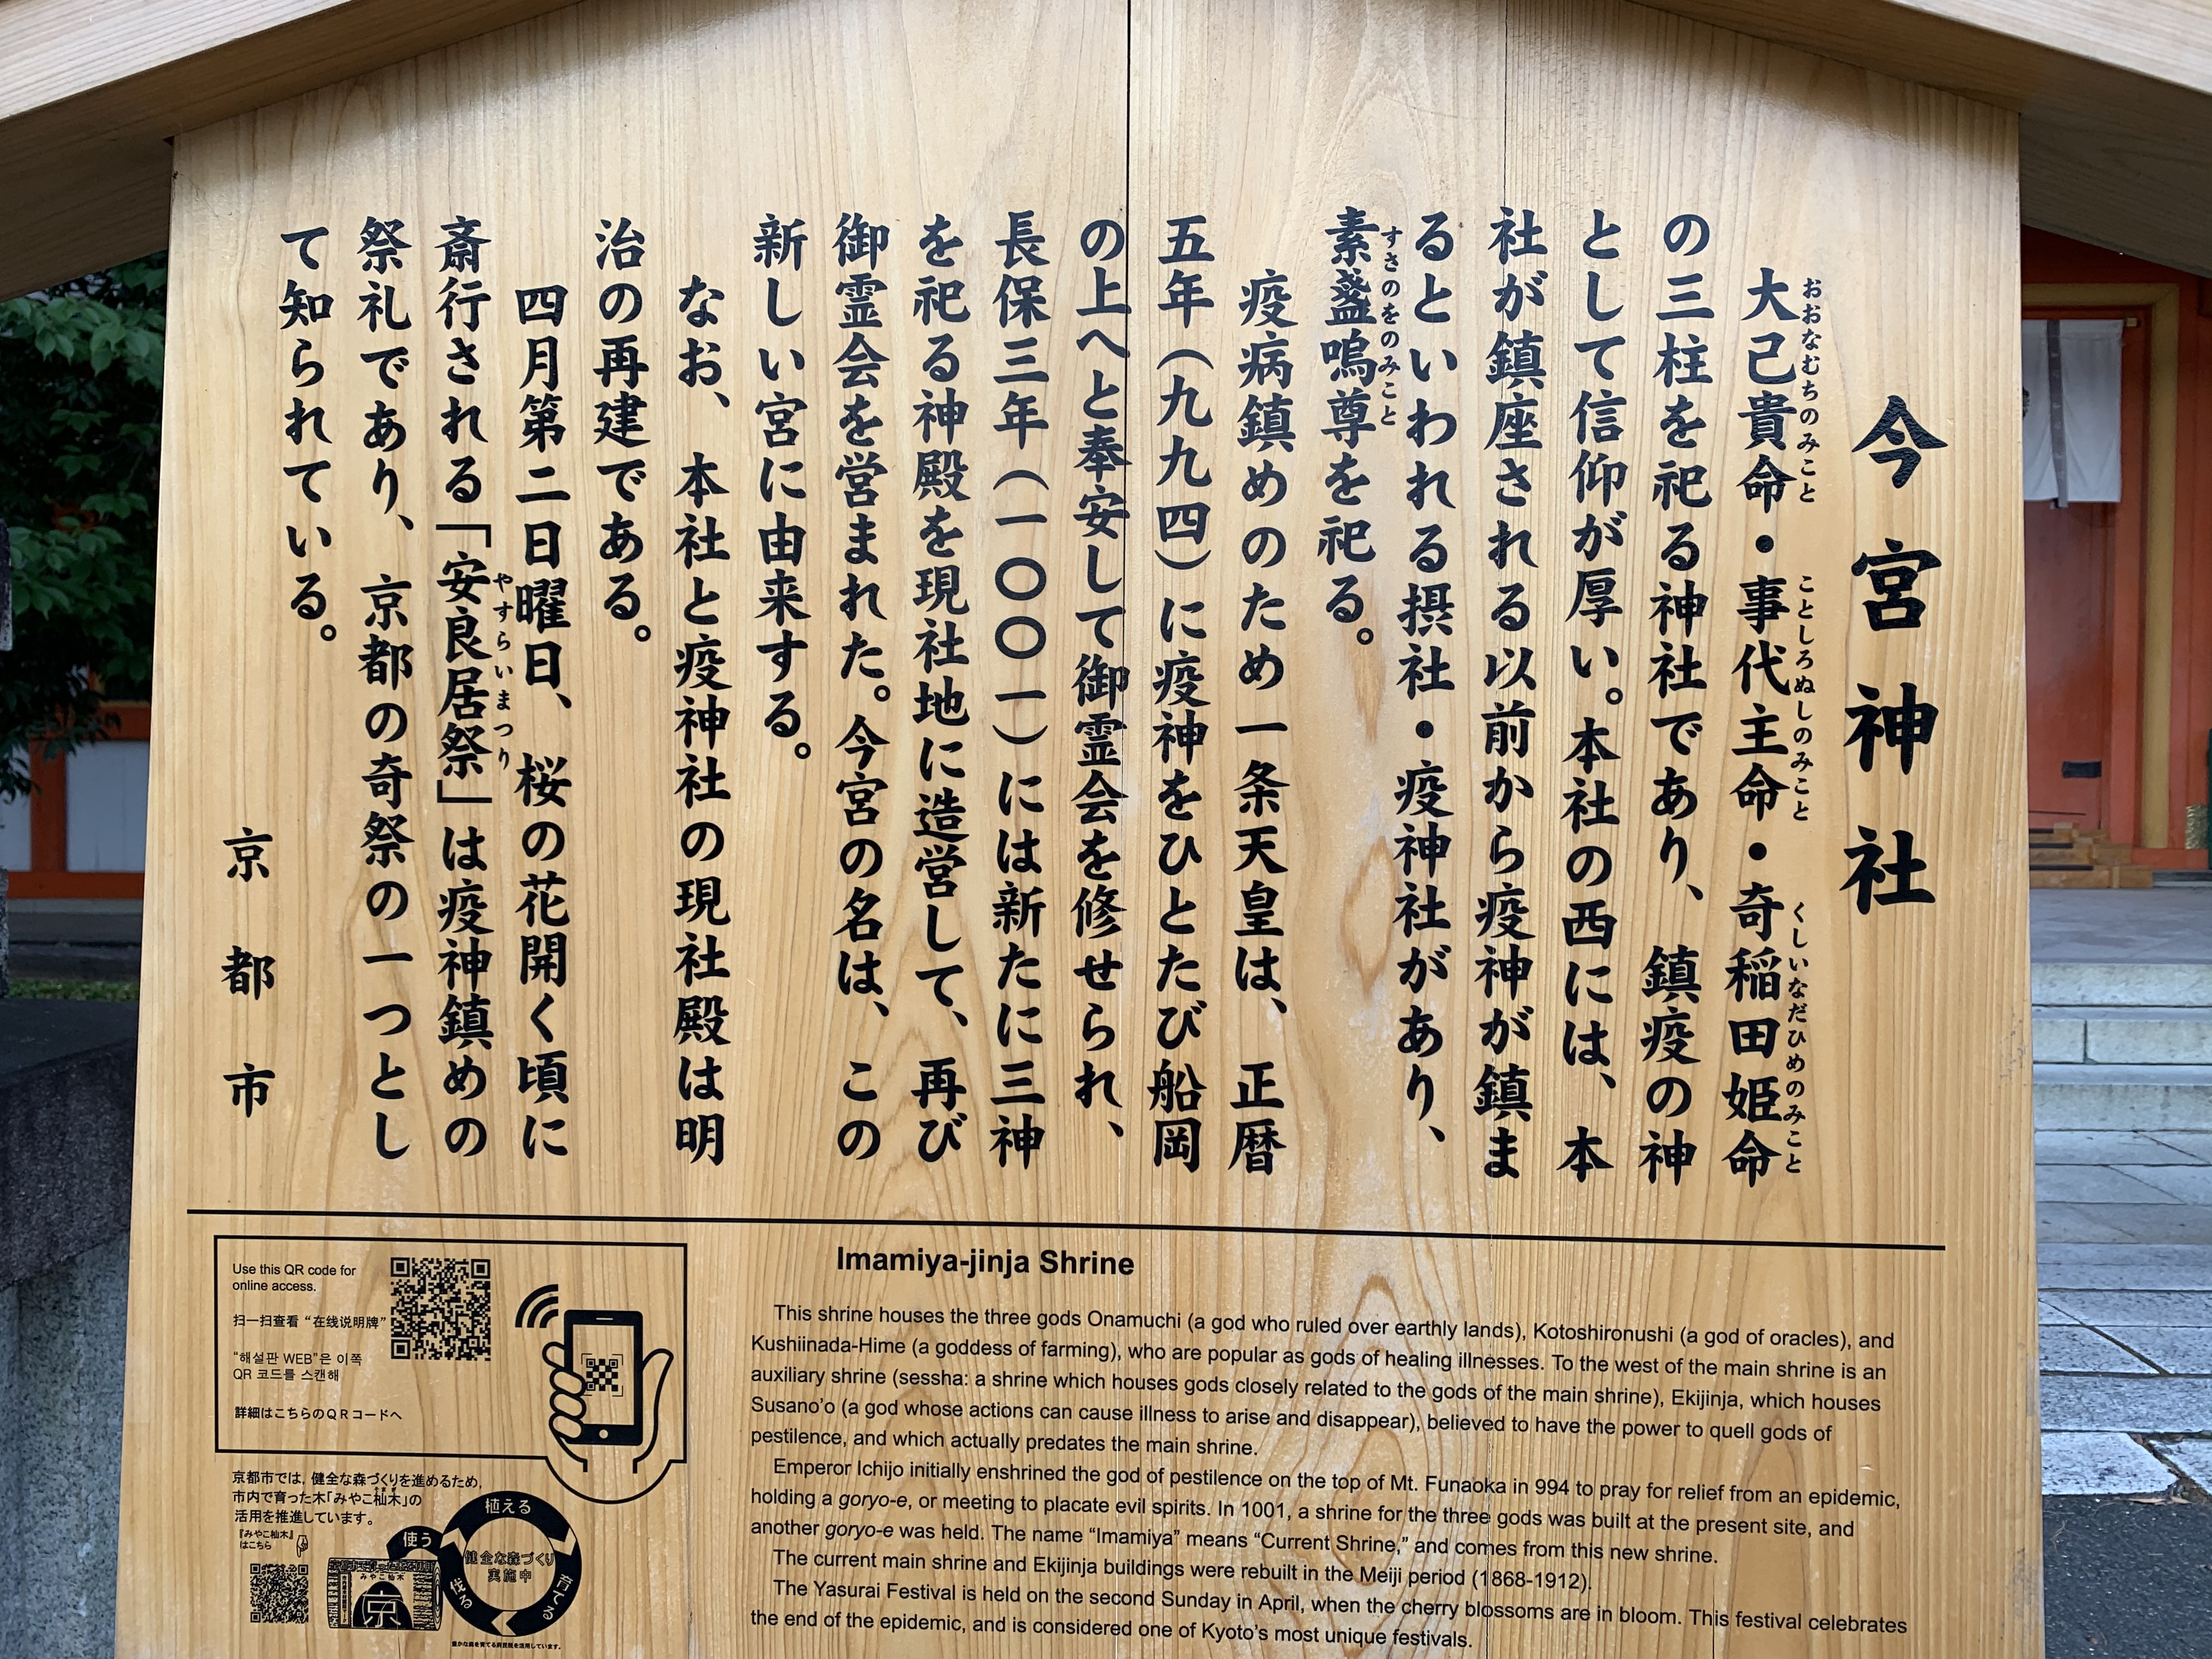 今宮神社
大己貴命・事代主命・奇稲田姫命
おおなむちのみこと ことしろぬしのみこと くしいなだひめのみこと
の三柱を祀る神社であり、鎮疫の神
として信仰が厚い。本社の西には、本
社が鎮座される以前から疫神が鎮ま
るといわれる摂社・疫神社があり、
素盞嗚尊を祀る。
すさのをのみこと
疫病鎮めのため一条天皇は、正暦
五年(九九四)に疫神をひとたび船岡
の上へと奉安して御霊会を修せられ、
長保三年(一〇〇一)には新たに三神
を祀る神殿を現社地に造営して、再び
御霊会を営まれた。今宮の名は、この
新しい宮に由来する。
なお、本社と疫神社の現社殿は明
治の再建である。
四月第二日曜日、桜の花開く頃に
斎行される「安良居祭」は疫神鎮めの
やすらいまつり
祭礼であり、京都の奇祭の一つとし
て知られている。
京都市
Imamiya-jinja Shrine
This shrine houses the three gods Onamuchi (a god who ruled over earthly lands), Kotoshironushi (a god of oracles), and
Kushiinada-Hime (a goddess of farming), who are popular as gods of healing illnesses. To the west of the main shrine is an
auxiliary shrine (sessha: a shrine which houses gods closely related to the gods of the main shrine), Ekijinja, which houses
Susano'o (a god whose actions can cause illness to arise and disappear), believed to have the power to quell gods of
pestilence, and which actually predates the main shrine.
Emperor Ichijo initially enshrined the god of pestilence on the top of Mt. Funaoka in 994 to pray for relief from an epidemic,
holding a goryo-e, or meeting to placate evil spirits. In 1001, a shrine for the three gods was built at the present site, and
another goryo-e was held. The name “Imamiya” means “Current Shrine,” and comes from this new shrine.
The current main shrine and Ekijinja buildings were rebuilt in the Meiji period (1868-1912).
The Yasurai Festival is held on the second Sunday in April, when the cherry blossoms are in bloom. This festival celebrates
the end of the epidemic, and is considered one of Kyoto's most unique festivals.
Use this QR code for
online access.
扫一扫查看“在线说明牌”
“해설판 WEB”은 이쪽
QR 코드를 스캔해
詳細はこちらのQRコードへ
京都市では、健全な森づくりを進めるため、
市内で育った木「みやこ杣木」の
活用を推進しています。
『みやこ杣木』
はこちら
植える
育てる
伐る
使う
健全な森づくり
実施中
みやこ杣木
京